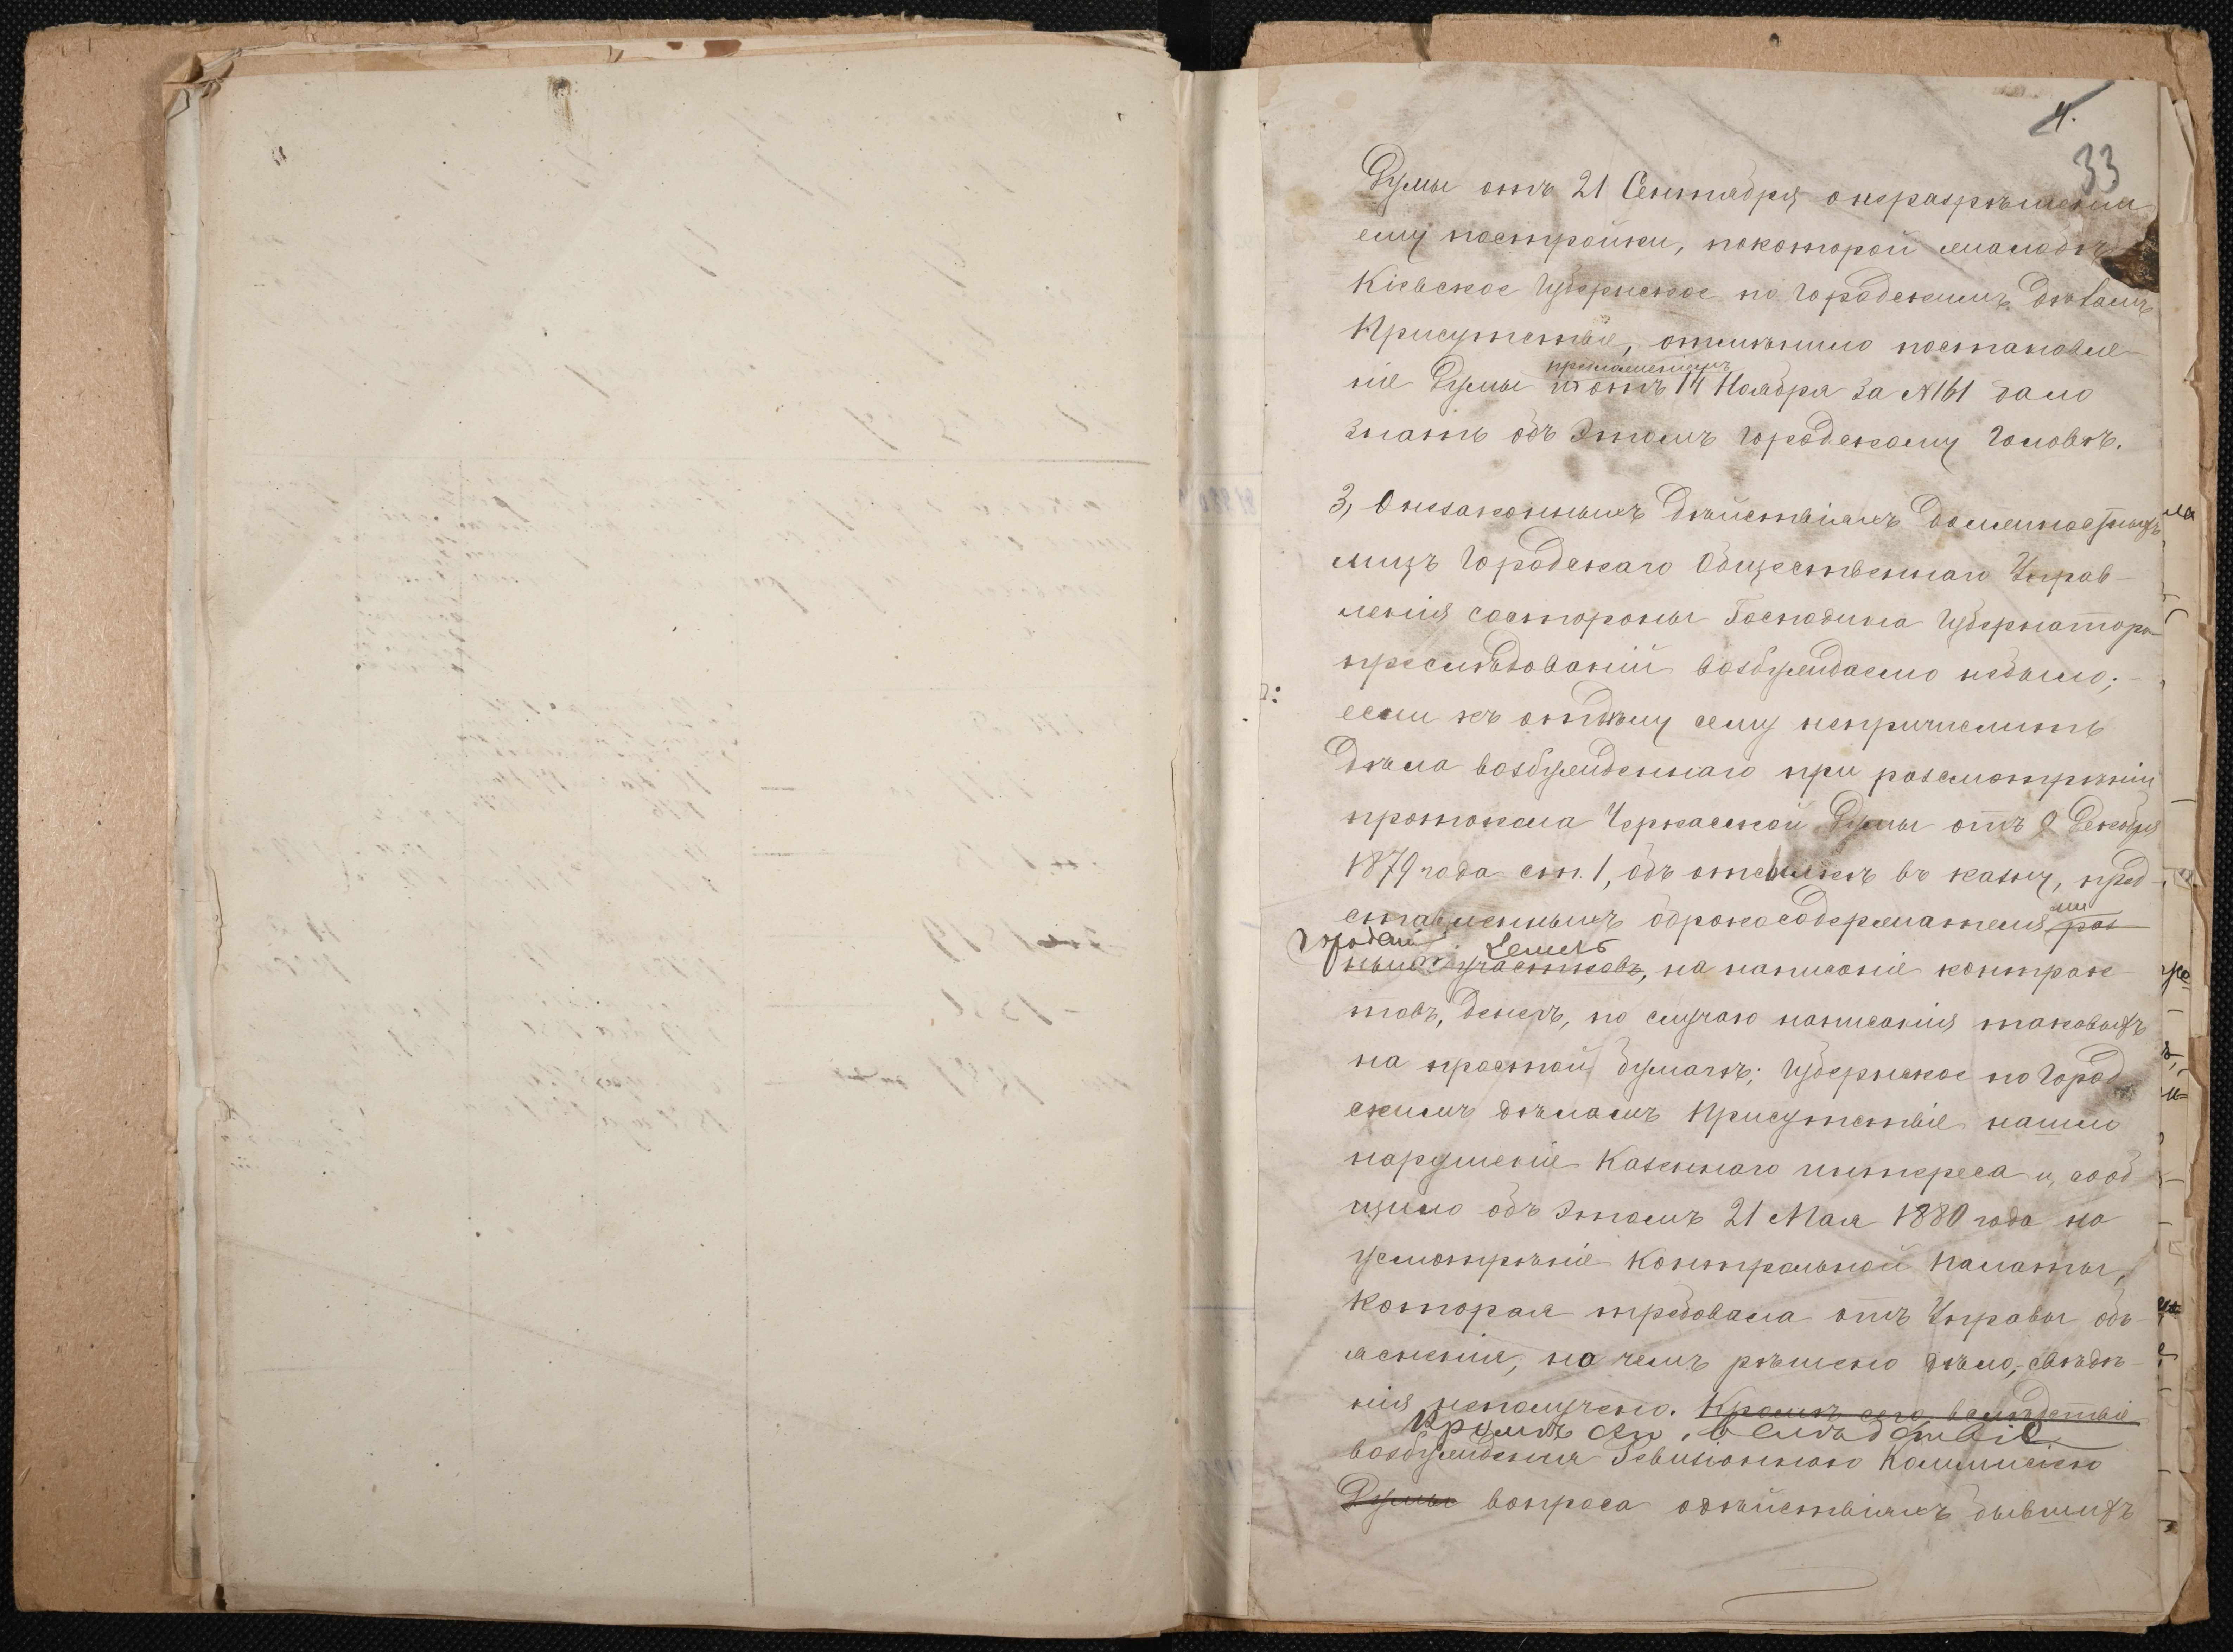 4.
33
Думы отъ 21 Сентября онеразрѣшеніи
ему постройки, покоторой жалобѣ
Кіевское Губернское по Городскимъ Дѣламъ
Присутствіе, отмѣнило постановле-
ніе Думы и отъ 14 Ноября за №161 дало
знать объ Этомъ Городскому Головѣ.
3, Онезаконныхъ Дѣйствіяхъ Должностныхъ
лицъ Городскаго Общественнаго Управ-
ленія состороны Господина Губернатора
преслѣдованій возбуждаемо небыло;-
если къ отдѣлу сему непричислить
Дѣла возбужденнаго при разсмотрѣніи
протокола Черкасской Думы отъ 9 Декабря
1879 года ст. 1, объ отсылкѣ въ казну, пред-
ставленныхъ оброкосодержателями раз
Городскихъ земель
ныхъ участковъ, на написаніе контрак-
товъ, денегъ, по случаю написанія таковыхъ
на простой бумагѣ; Губернское по Город
скимъ дѣламъ Присутствіе нашло
нарушеніе Казеннаго интереса и, сооб
щило объ Этомъ 21 Мая 1880 года на
усмотрѣніе Контрольной Палаты,
Которая требовала отъ Управы объ-
ясненія; но чемъ рѣшено дѣло,- свѣдѣ-
нія неполучено. Кромѣ сего, вслѣдствіе
Кромѣ сего, вслѣдствіе
возбужденія Ревизіонною Коммисіею
Думы вопроса одѣйствіяхъ бывшихъ